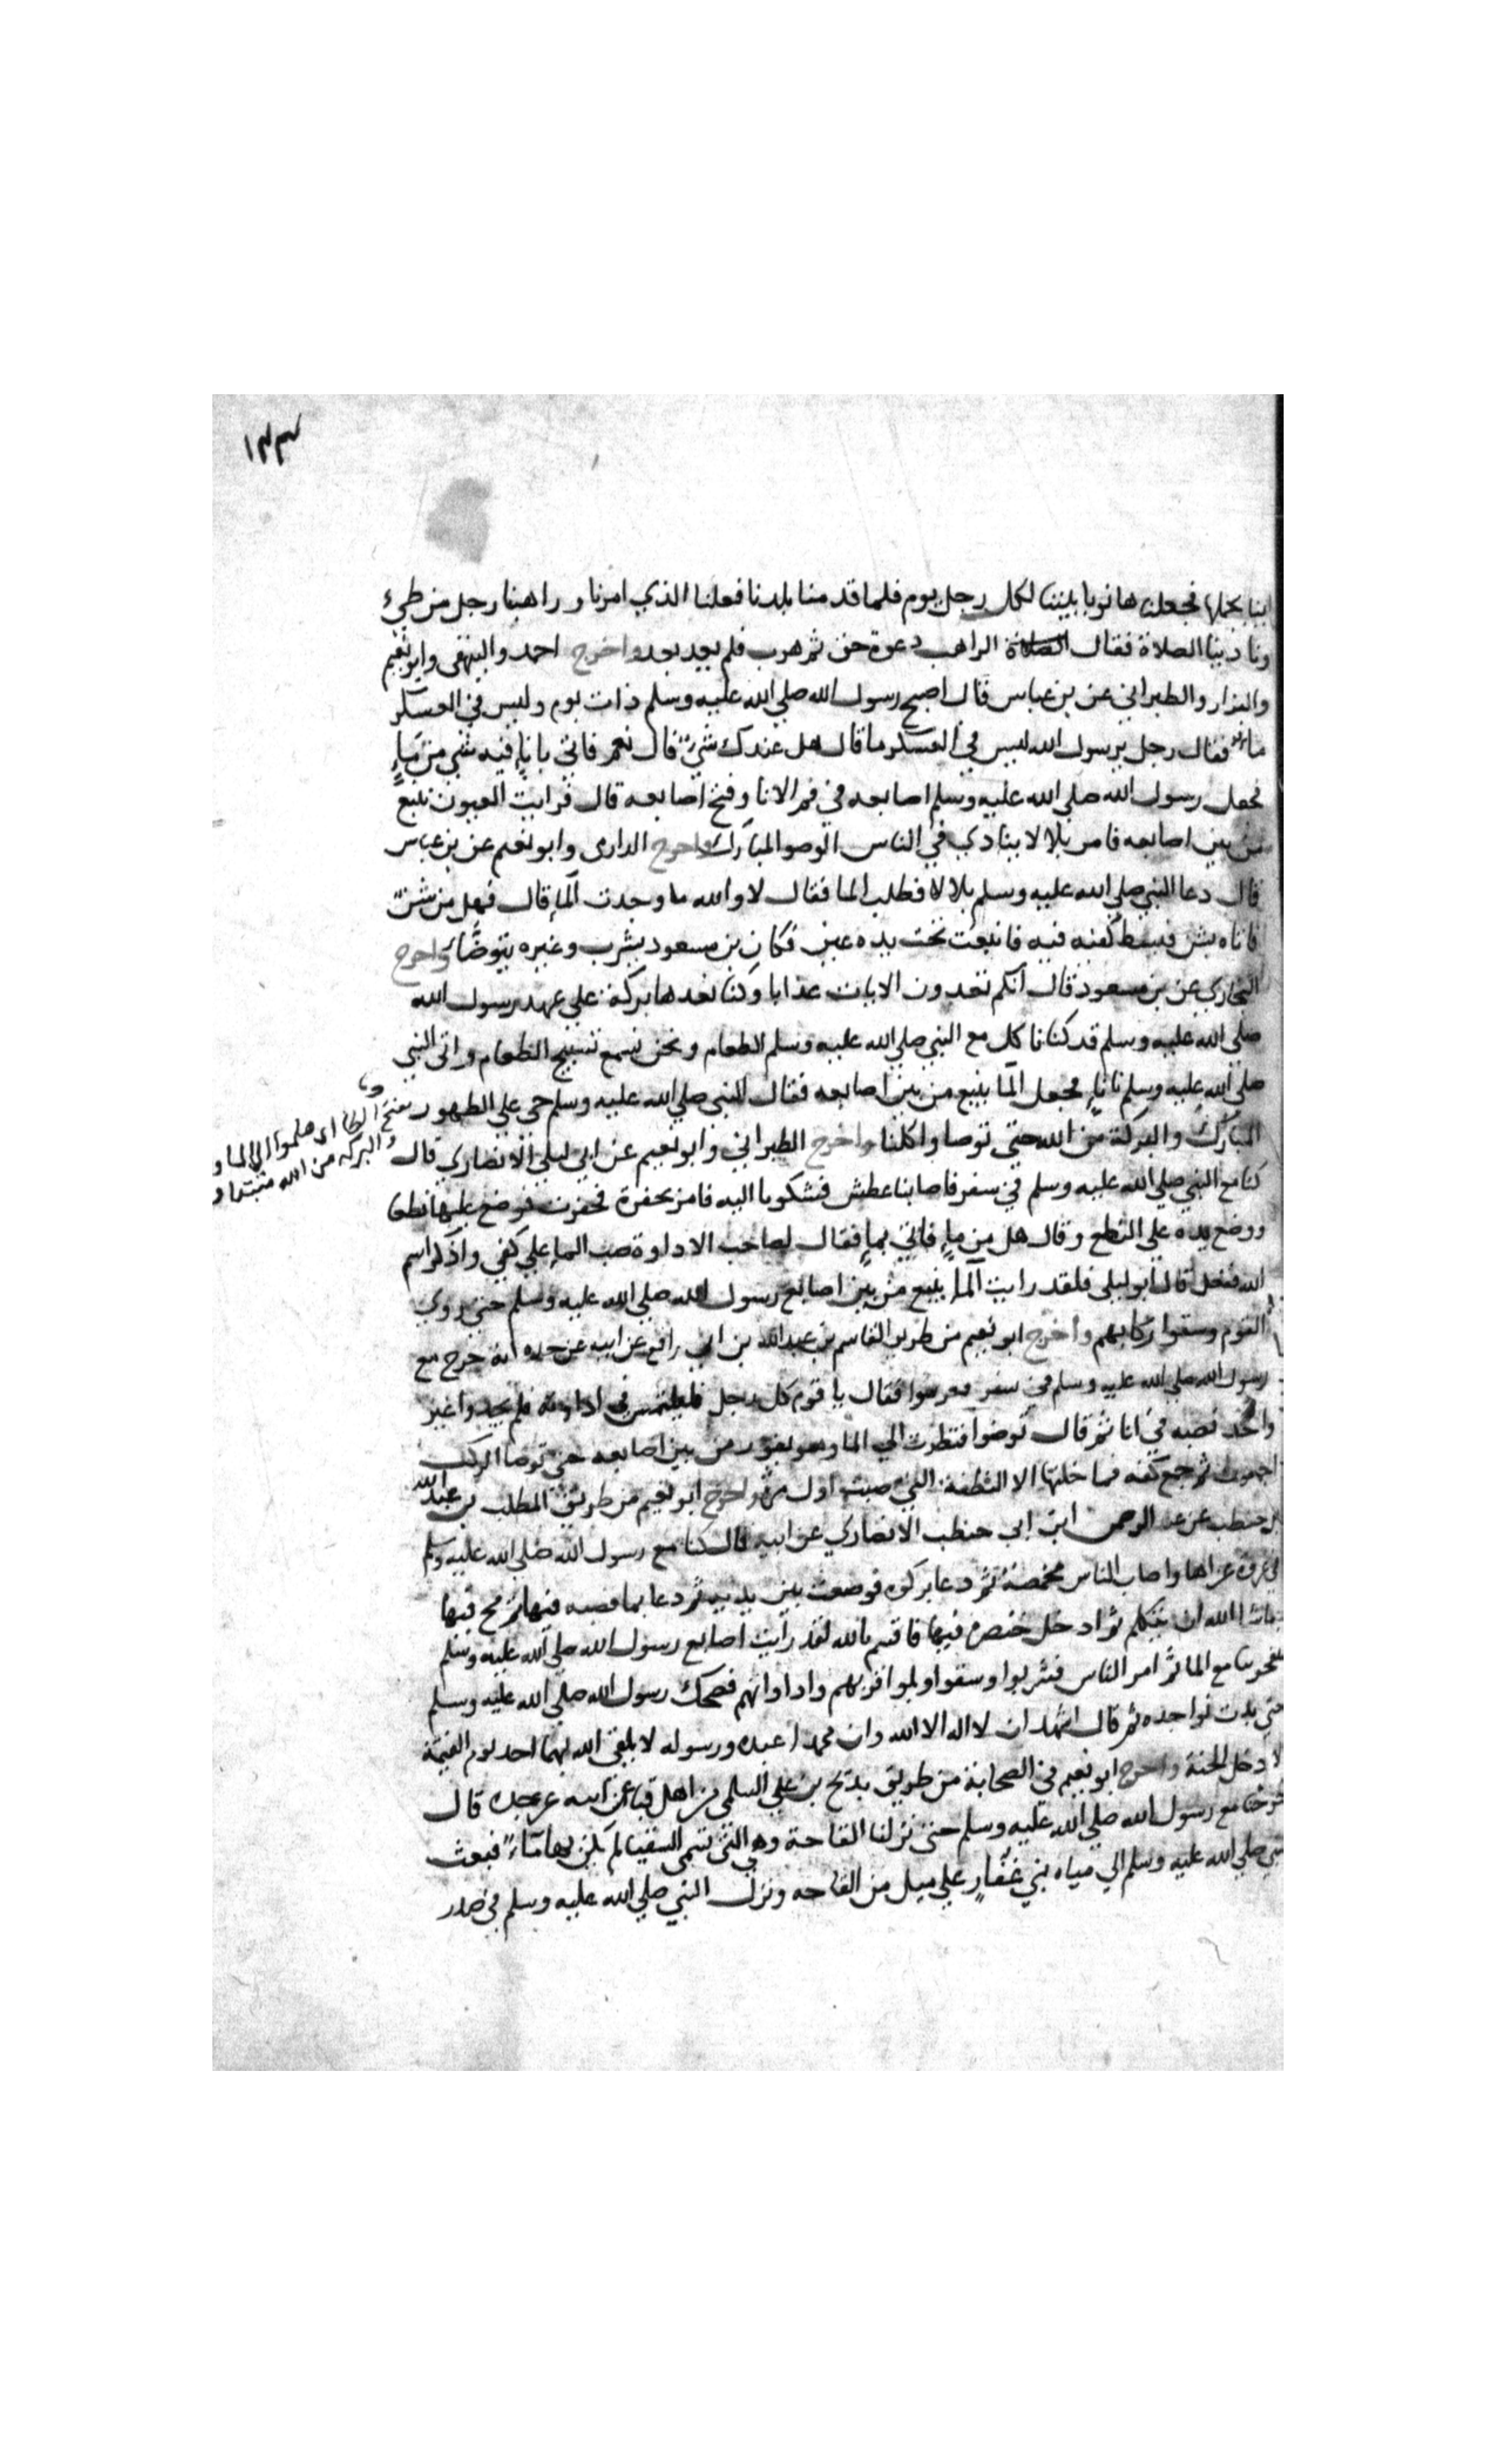 ١٣٣
اينا يحملها فجعلناها نوبا بيننا لكل رجل يوم فلما قدمنا بلدنا فعلنا الذي امرنا وراهبنا رجل من طيء
ونادينا الصلاة فقال الراهب دعوة حق ثم هرب فلم يعد بعد واخرج احمد والبيهقي وابو نعيم
والبزار والطبراني عن بن عباس قال اصبح رسول الله صلي الله عليه وسلم ذات يوم وليس في العسكر
ماء فقال رجل يرسول الله ليس في العسكر ما قال هل عندك شيء قال نعم فاتي باناءٍ فيه شي من ماءٍ
فجعل رسول الله صلي الله عليه وسلم اصابعه في فم الانا وفتح اصابعه قال فرايت العيون تنبع
من بين اصابعه فامر بلالا ينادي في الناس الوضو المبارك واخرج الدارمى وابو نعيم عن بن عباس
قال دعا النبي صلي الله عليه وسلم بلالا فطلب الما فقال لا والله ما وجدت الماء قال فهل من شن
فاتاه بشن فبسط كفيه فيه فانبعث تحت يده عين فكان بن مسعود يشرب وغيره يتوضا واخرج
البخاري عن بن مسعود قال انكم تعدون الايات عذابا وكنا نعدها بركة علي عهد رسول الله
صلي الله عليه وسلم قد كنا ناكل مع النبي صلي الله عليه وسلم الطعام ونحن نسمع تسبيح الطعام واتي النبي
صلي الله عليه وسلم باناءٍ فجعل الما ينبع من بين اصابعه فقال النبي صلي الله عليه وسلم حي علي الطهور
بفتح الطا اي هلموا الي الما و
المبارك والبركة من الله حتي توضا واكلنا واخرج الطبراني وابو نعيم عن ابي ليلي الانصاري قال
والبركه من الله مبتدا و
كنا مع النبي صلي الله عليه وسلم في سفر فاصابنا عطش فشكونا اليه فامر بحفرة فحفرت فوضع عليها نطعا
ووضع يده علي النطع وقال هل من ماءٍ فاتي بماءٍ فقال لصاحب الاداوة صب الماء علي كفي واذكر اسم
الله ففعل قال ابو ليلي فلقد رايت الماء ينبع من بين اصابع رسول الله صلي الله عليه وسلم حتي روي
القوم وسقوا ركابهم واخرج ابو نعيم من طريق القاسم بن عبد الله بن ابي رافع عن ابيه عن جده انه خرج مع
رسول الله صلي الله عليه وسلم في سفر فعرسوا فقال يا قوم كل رجل فليلتمس في اداوته فلم يجدوا غير
واحد فصبه في انا ثم قال توضوا فنظرت الي الما وهو يفور من بين اصابعه حتي توضا الركب
اجمعون ثم جمع كفه فما خلتها الا النطفة التي صبت اول مرة واخرج ابو نعيم من طريق المطلب بن عبد الله
بن حنطب عن عبد الرحمن ابن ابي حنطب الانصاري عن ابيه قال كنا مع رسول الله صلي الله عليه وسلم
في غزوة غزاها واصاب الناس مخمصة ثم دعا بركوه فوضعت بين يديه ثم دعا بما فصبه فيها ثم مج فيها
ما شا الله ان يتكلم ثم ادخل خنصره فيها فاقسم بالله لقد رايت اصابع رسول الله صلي الله عليه وسلم
مع الما ثم امر الناس فشربوا وسقوا وملوا قربهم واداواتهم فضحك رسول الله صلي الله عليه وسلم
حتي بدت نواجده ثم قال اشهد ان لا اله الا الله وان محمدا عبده ورسوله لا يلقي الله بهما احد يوم القيمة
الا دخل الجنة واخرج ابو نعيم في الصحابة من طريق بديح بن علي السلمي من اهل قبا عن ابيه عن جده قال
خرجنا مع رسول الله صلي الله عليه وسلم حتي نزلنا القاحة وهي التي تسمي السقيا لم يكن بها ماء فبعث
النبي صلي الله عليه وسلم الي مياه بني غفارٍ علي ميل من القاحه ونزل النبي صلي الله عليه وسلم في صدر